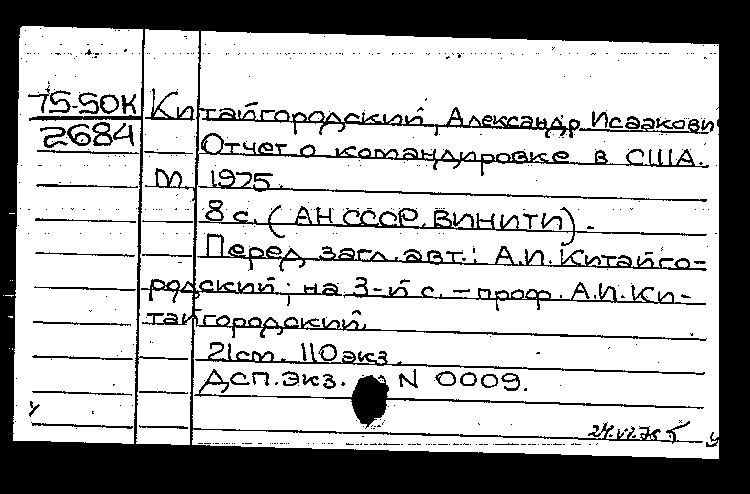 75-50К Китайгородский, Александр Исаакович
2684 Отчет о командировке в США.
М. 1975.
8 с. (АН СССР. ВИНИТИ).
Перед загл. авт.: А.И. Китайго-
родский; на 3-й с. - проф. А.И. Ки-
тайгородский.
21 см. 110 экз.
ДСП. Экз. N 0009.
у у